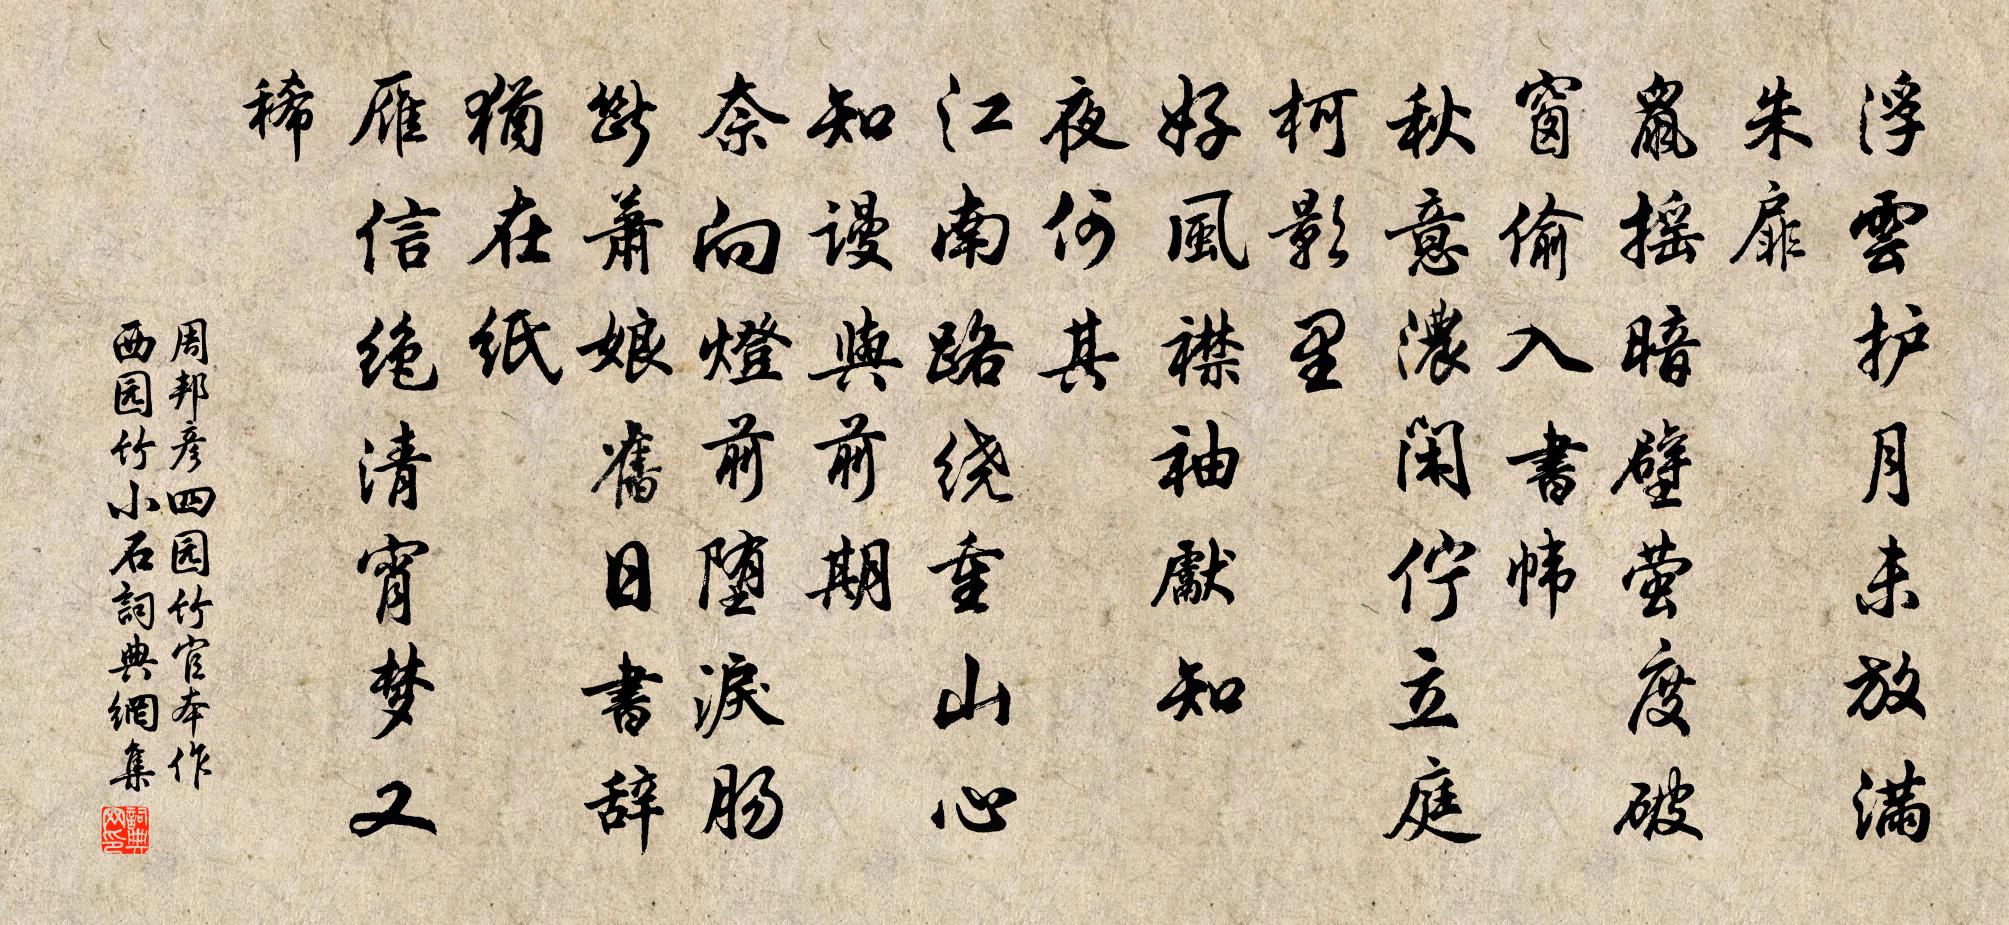 浮雲护月未放满
朱扉
鼠摇暗壁萤度破
窗偷入書帏
秋意濃闲伫立庭
柯影里
好風襟袖獻知
夜何其
江南路绕重山心
知谩與前期
奈向燈前堕淚肠
斷萧娘舊日書辞
猶在纸
雁信绝清宵梦又
稀
周邦彦四园竹官本作
西园竹小石詞典網集
詞典
网印